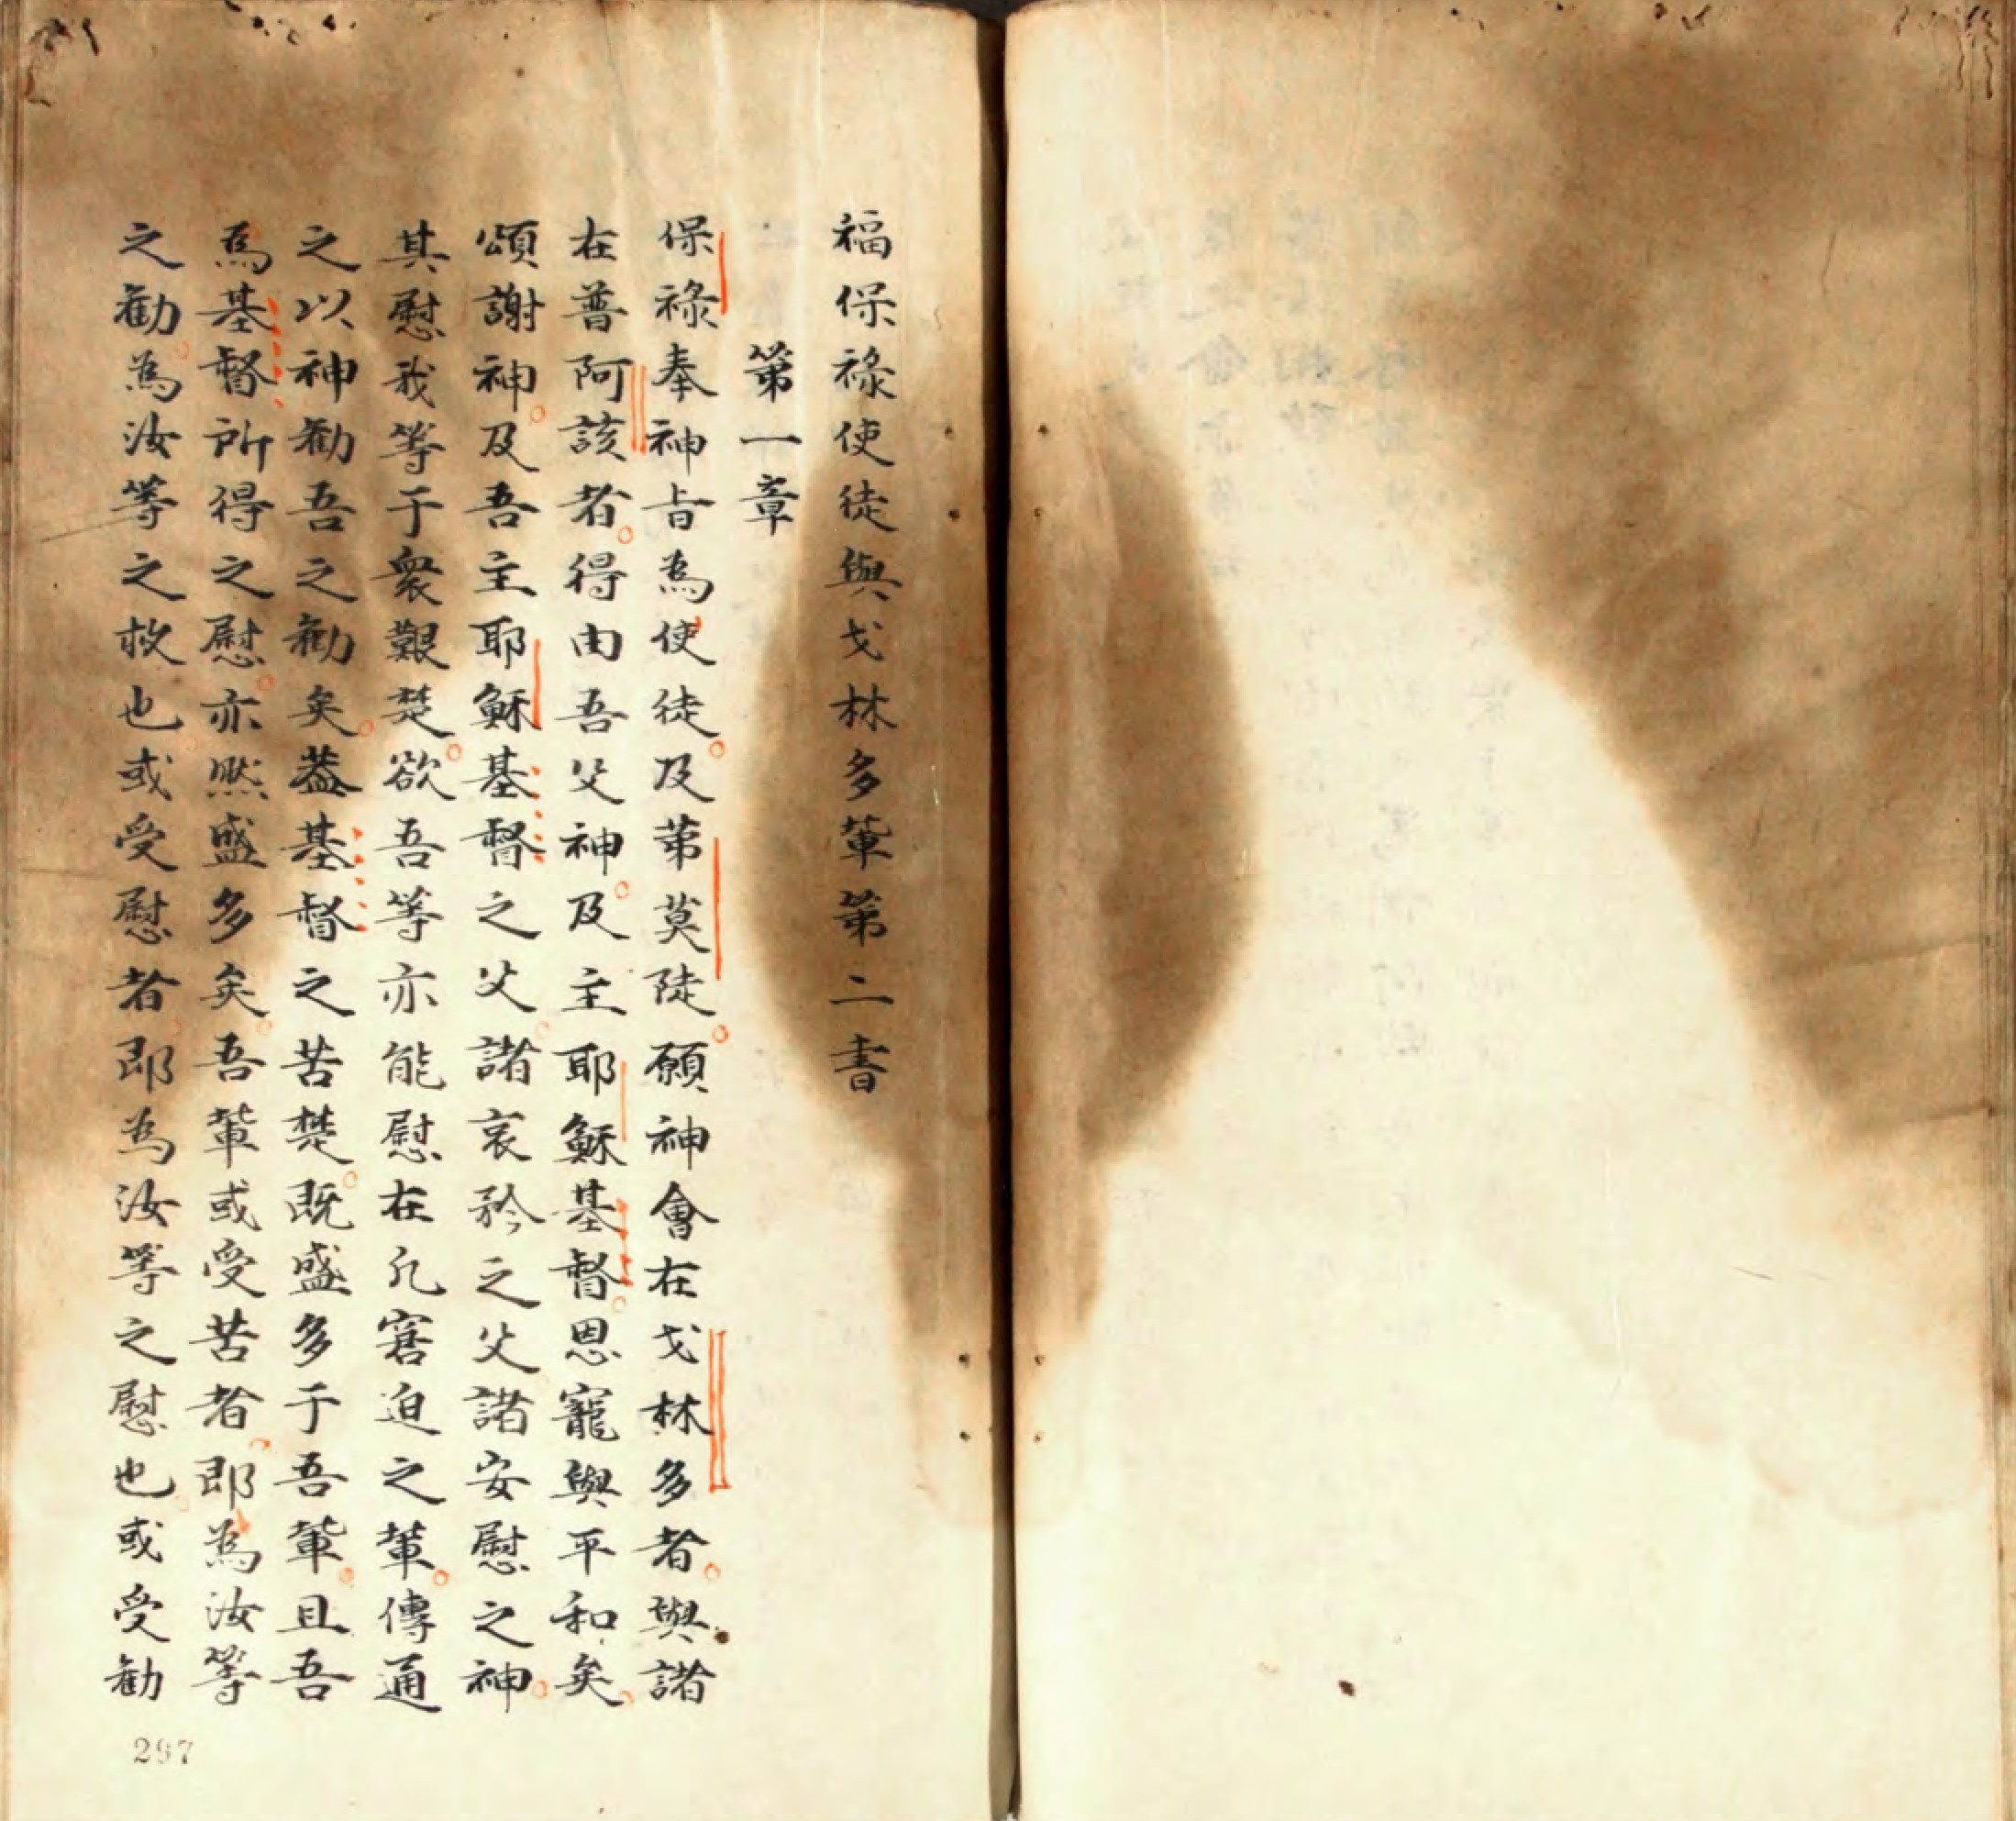 福保祿使徒與戈林多輩第二書
第一章
保祿奉神旨為使徒。及苐莫陡。願神會在戈林多者。與諸
在普阿該者。得由吾父神。及主耶穌基督。恩寵與平和矣。
頌謝神。及吾主耶穌基督之父。諸哀矜之父諸安慰之神。
其慰我等于衆艱楚。欲吾等亦能慰在凢窘迫之輩。傳通
之以神勸吾之勸矣。葢基督之苦楚。既盛多于吾輩。且吾
為基督所得之慰。亦然盛多矣。吾輩或受苦者。即為汝等
之勸。為汝等之救也。或受慰者。即為汝等之慰也。或受勸
297